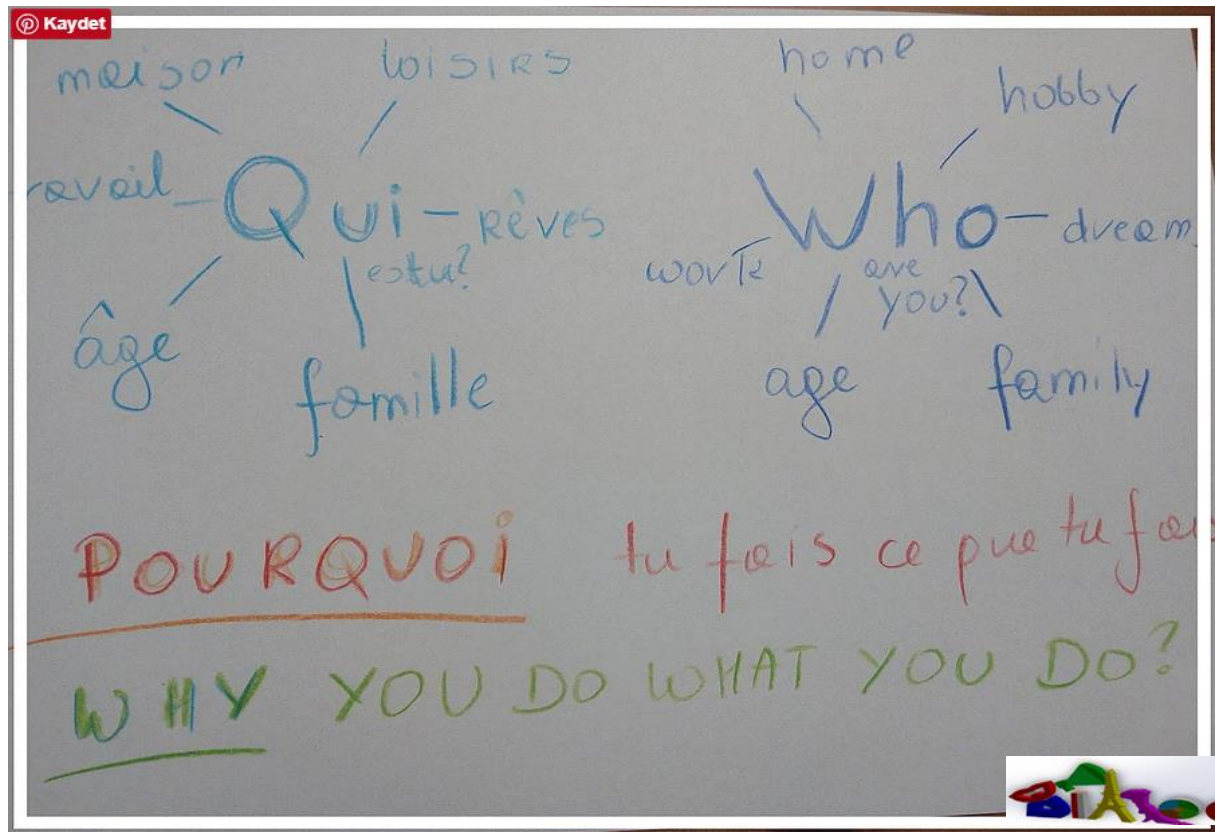 Kaydet
maison loisirs
ravail Qui rêves
es tu?
âge famille
home hobby
Who dream
work are
you?
age family
POURQUOI tu fais ce que tu fais
WHY YOU DO WHAT YOU DO?